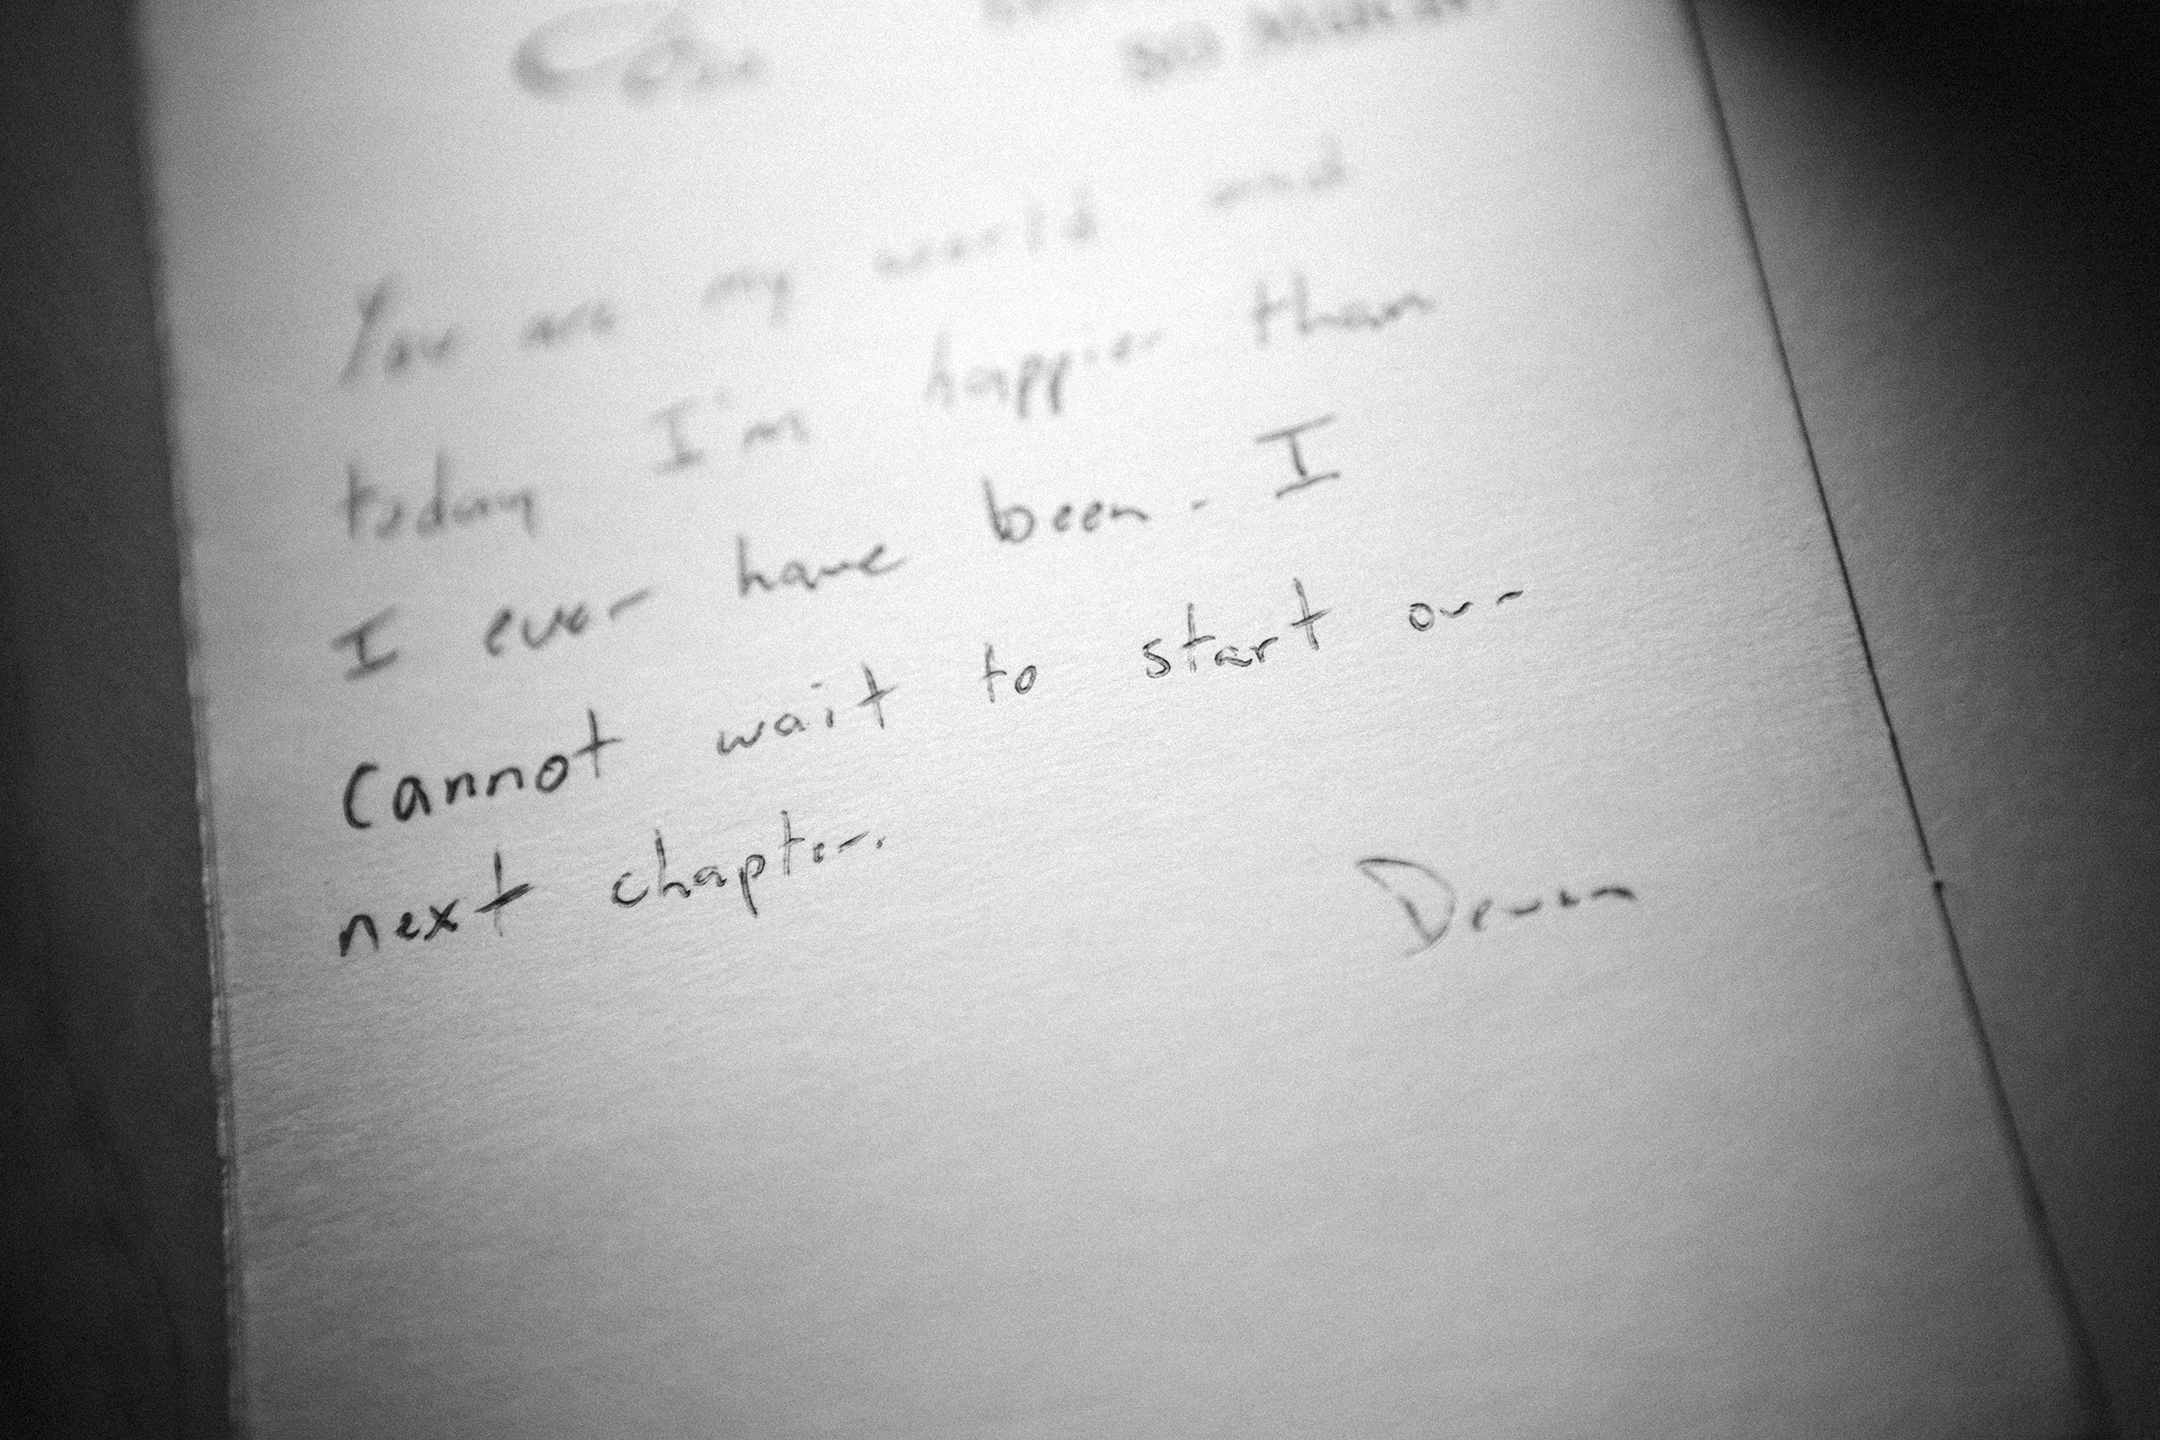 You are my world and
today I'm happier than
I ever have been. I
cannot wait to start our
next chapter.
Devon